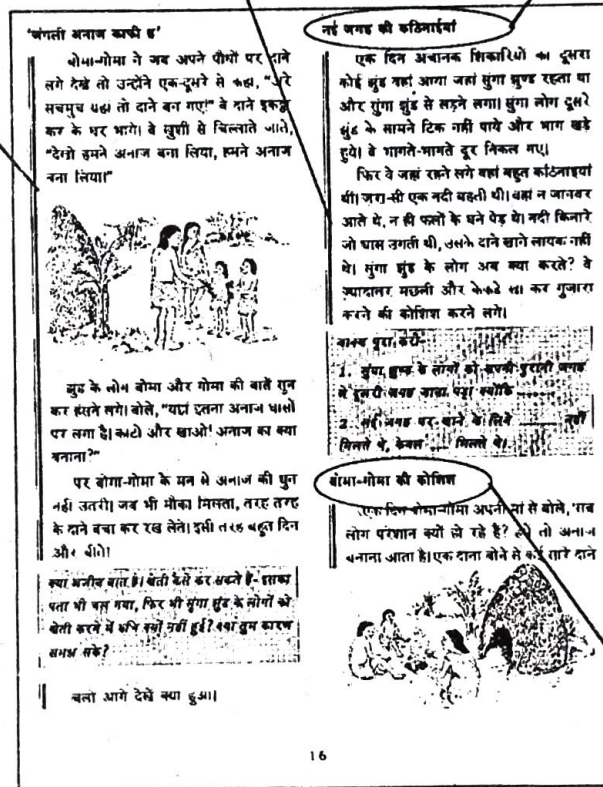 'जंगली अनाज काफी है'
बोमा-गोमा ने जब अपने पौधों पर दाने
लगे देखे तो उन्होंने एक-दूसरे से कहा, "अरे
सचमुच यहां तो दाने बन गए!" वे दाने इकट्ठा
कर के घर भागे। वे खुशी से चिल्लाते जाते,
"देखो हमने अनाज बना लिया, हमने अनाज
बना लिया।"
झुंड के लोग बोमा और गोमा की बातें सुन
कर हंसने लगे। बोले, "यहां इतना अनाज घासों
पर लगा है। काटो और खाओ! अनाज का क्या
बनाना?"
पर बोमा-गोमा के मन से अनाज की धुन
नहीं उतरी। जब भी मौका मिलता, तरह तरह
के दाने बचा कर रख लेते। इसी तरह बहुत दिन
और बीते।
क्या अजीब बात है। खेती कैसे कर सकते हैं- इसका
पता भी चल गया, फिर भी सुंगा झुंड के लोगों को
खेती करने में रुचि क्यों नहीं हुई? क्या तुम कारण
समझ सके?
चलो आगे देखें क्या हुआ।
नई जगह की कठिनाईयां
एक दिन अचानक शिकारियों का दूसरा
कोई झुंड वहां आया जहां सुंगा झुण्ड रहता था
और सुंगा झुंड से लड़ने लगा। सुंगा लोग दूसरे
झुंड के सामने टिक नहीं पाये और भाग खड़े
हुये। वे भागते-भागते दूर निकल गए।
फिर वे जहां रहने लगे वहां बहुत कठिनाइयां
थीं। ज़रा-सी एक नदी बहती थी। वहां न जानवर
आते थे, न ही फलों के घने पेड़ थे। नदी किनारे
जो घास उगती थी, उसके दाने खाने लायक नहीं
थे। सुंगा झुंड के लोग अब क्या करते? वे
ज़्यादातर मछली और केकड़े खा कर गुज़ारा
करने की कोशिश करने लगे।
वाक्य पूरा करो-
1. सुंगा झुण्ड के लोगों को अपनी पुरानी जगह
से दूसरी जगह जाना पड़ा क्योंकि ........
2. नई जगह पर खाने के लिये ........ नहीं
मिलते थे, केवल .... मिलते थे।
बोमा-गोमा की कोशिश
एक दिन बोमा-गोमा अपनी मां से बोले, "सब
लोग परेशान क्यों हो रहे हैं? हमें तो अनाज
बनाना आता है। एक दाना बोने से कई सारे दाने
16